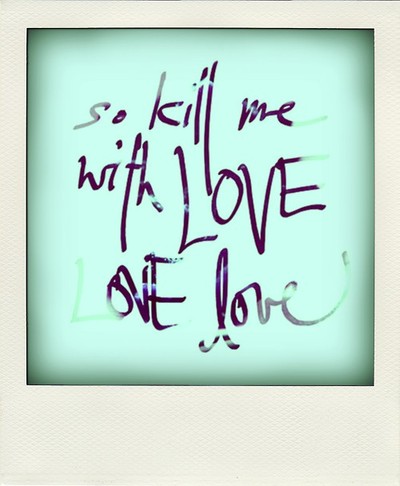 so kill me
with LOVE
LOVE love